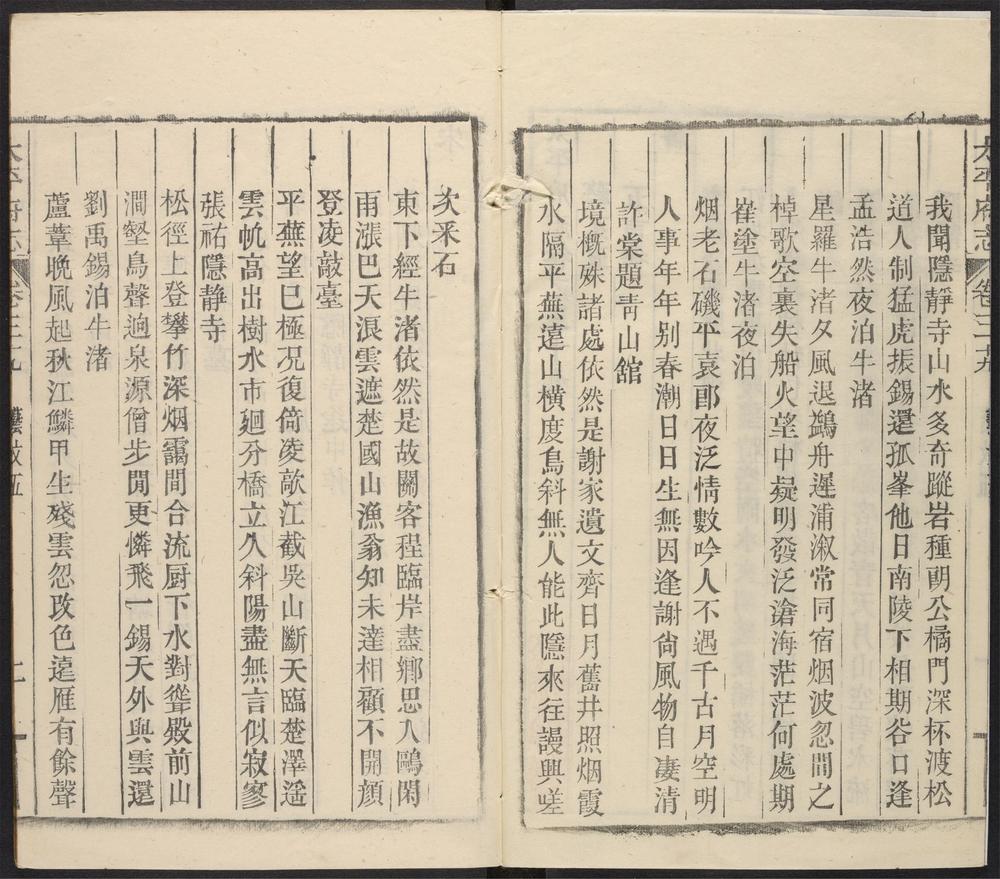 太平府志 卷三十九 藝文五
我聞隱靜寺山水多奇蹤岩種朗公橘門深杯渡松
道人制猛虎振錫還孤峯他日南陵下相期谷口逢
孟浩然夜泊牛渚
星羅牛渚夕風退鷁舟遲浦漵常同宿烟波忽間之
棹歌空裏失船火望中疑明發泛滄海茫茫何處期
崔塗牛渚夜泊
烟老石磯平袁郎夜泛情數吟人不遇千古月空明
人事年年别春潮日日生無因逢謝尙風物自凄清
許棠題靑山舘
境槪殊諸處依然是謝家遺文齊日月舊井照烟霞
水隔平蕪遠山橫度鳥斜無人能此隱來往謾興嗟
次采石
東下經牛渚依然是故關客程臨岸盡鄉思入鷗閑
雨漲巴天浪雲遮楚國山漁翁知未達相顧不開顔
登凌敲臺
平蕪望已極况復倚凌歊江截吳山斷天臨楚澤遥
雲帆高出樹水市廻分橋立久斜陽盡無言似寂寥
張祐隱靜寺
松徑上登攀竹深烟靄間合流厨下水對聳殿前山
澗壑鳥聲逈泉源僧步閒更憐飛一錫天外與雲還
劉禹錫泊牛渚
蘆葦晚風起秋江鱗甲生殘雲忽改色遠雁有餘聲
太平府志 卷三十九 藝文五